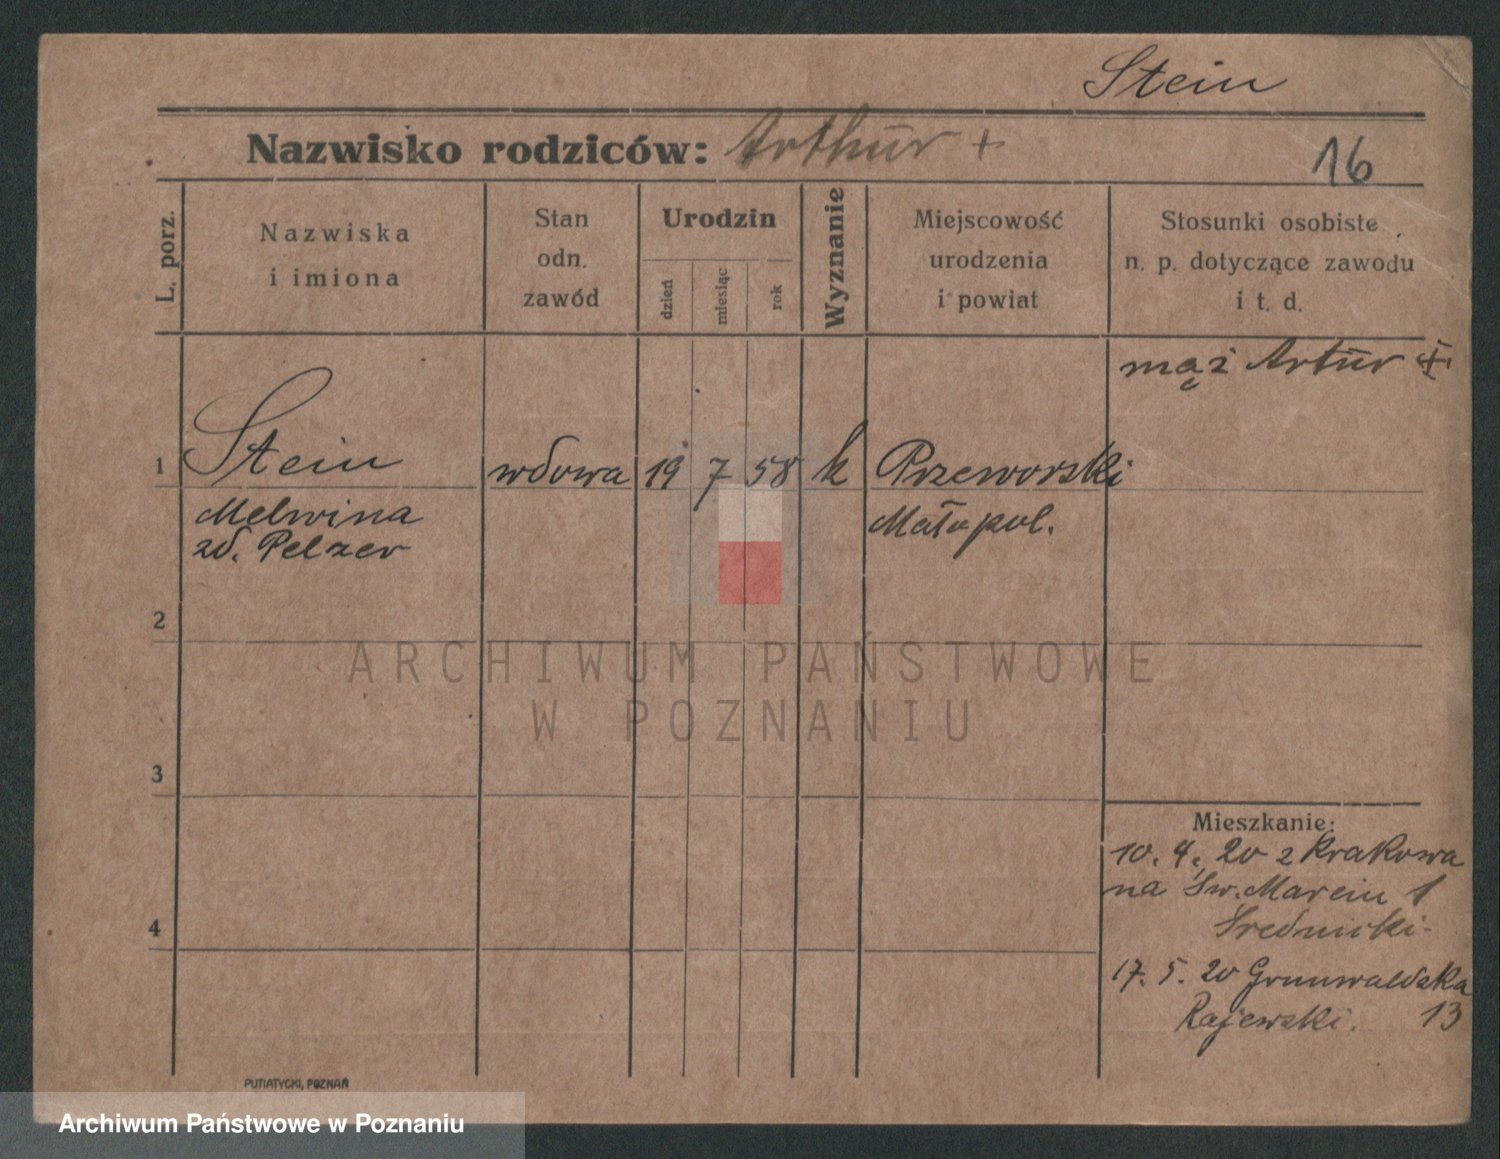 Stein
Nazwisko rodziców: Arthur +
16
L. porz.
Nazwiska
i imiona
Stan
odn.
zawód
Urodzin
dzień
miesiąc
rok
Wyznanie
Miejscowość
urodzenia
i powiat
Stosunki osobiste
n. p. dotyczące zawodu
i t. d.
mąż Artur +
1 Stein wdowa 19 7 58 k Przeworski
Melwina Małopol.
zd. Pelzer
2
ARCHIWUM PAŃSTWOWE
W POZNANIU
3
Mieszkanie:
10. 4. 20 z Krakowa
na Św. Marcin 1
Średnicki
4
17. 5. 20 Grunwaldzka
Rajewski. 13
PUTIATYCKI, POZNAŃ
Archiwum Państwowe w Poznaniu